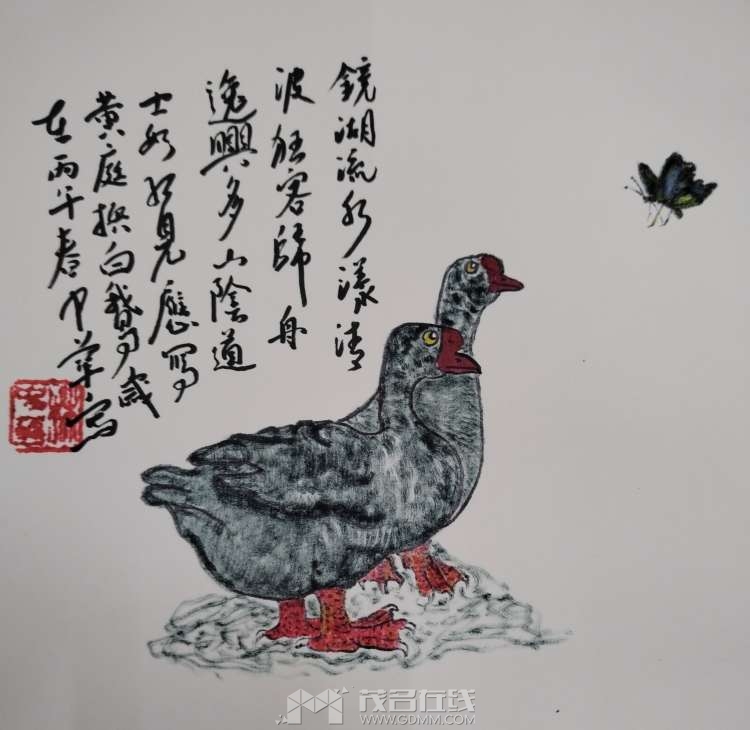 鏡湖流水漾清
波狂客歸舟
逸興多山陰道
士如相見應寫
黄庭换白鵝歲
在丙午春中華寫
茂名在线
WWW.GDMM.COM